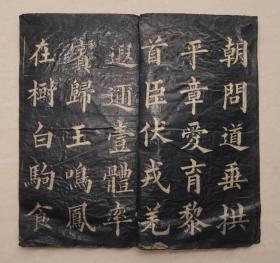 朝問道垂拱
平章愛育黎
首臣伏戎羌
遐邇壹體率
賓歸王鳴鳳
在樹白駒食